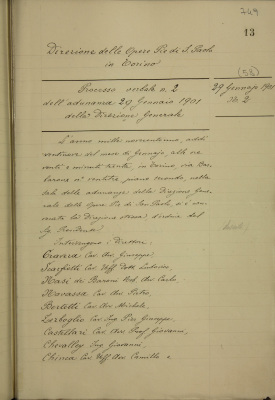 749
13
Direzione delle Opere Pie di S. Paolo
in Torino
(58)
Processo verbale n. 2
dell'adunanza 29 Gennaio 1901
della Direzione Generale
29 Gennaio 1901
N. 2
L'anno mille novecentouno, addì
ventinove del mese di Gennaio, alle ore
venti e minuti trenta, in Torino, via
n. ventitre, piano secondo, nella
sala delle adunanze della Direzione Gene-
rale delle Opere Pie di San Paolo, si è con-
vocata la Direzione stessa d'ordine del
Sig. Presidente
Intervengono i Direttori:
Craveri Cav. Avv. Giuseppe,
Scarfiotti Cav. Uff. Dott. Lodovico,
Nasi Cav. Carlo,
Navassa Cav. Avv. Pietro,
Bertetti Cav. Avv. Michele,
Cav. Ing. Giuseppe,
Castellari Cav. Avv. Prof. Giovanni,
Chevalley Ing. Giovanni,
Chinea Cav. Uff. Avv. Camillo e